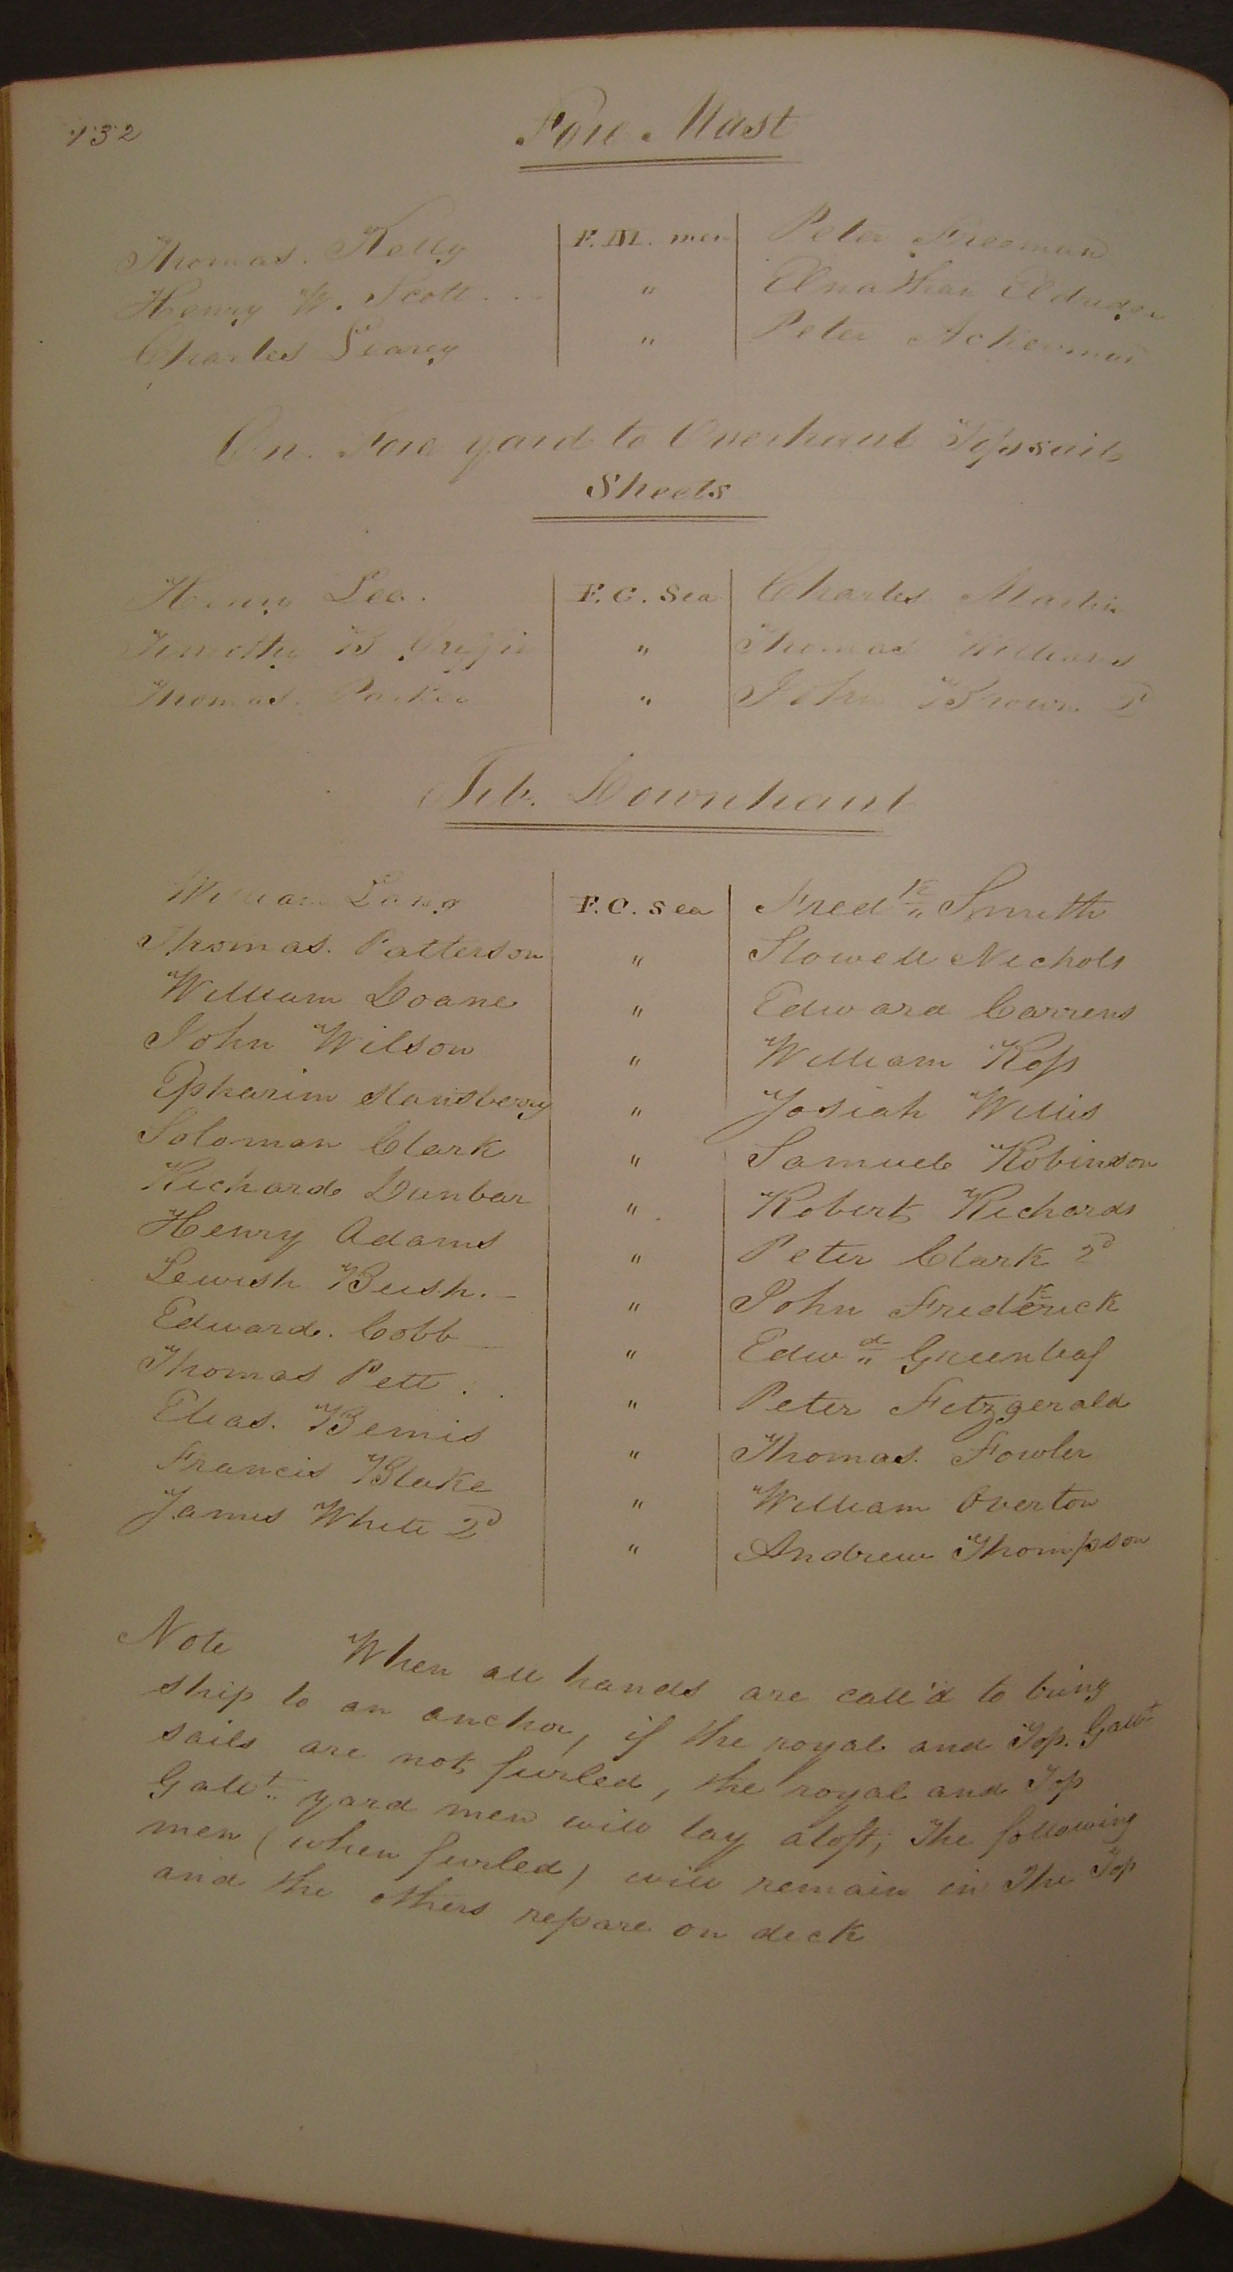 132
Fore Mast
Thomas. Kelly F. M. men Peter Freeman
Henry W. Scott " Elnathan Eldridge
Charles Searcy " Peter Ackerman
On. Fore yard to Overhaul Topsail
Sheets
Henry Lee. F. C. Sea Charles Martin
Timothy B Griffin " Thomas Williams
Thomas. Parker " John Brown 2d
Jib. Downhaul
William Lang F. C. Sea Fredk Smith
Thomas. Patterson " Stowell Nichols
William Doane " Edward Carrens
John Wilson " William Ross
Epharim Stansberry " Josiah Willis
Soloman Clark " Samuel Robinson
Richard Dunbar " Robert Richards
Henry Adams " Peter Clark 2d
Lewish Bush. " John Frederick
Edward. Cobb " Edwd Greenleaf
Thomas Pett " Peter Fitzgerald
Elias. Bemis " Thomas. Fowler
Francis Blake " William Overton
James White 2d " Andrew Thompson
Note When all hands are call'd to bring
ship to an anchor, if the royal and Top. Gallt
sails are not furled, the royal and Top
Gallt yard men will lay aloft; The following
men (when furled) will remain in The Top
and the others repare on deck